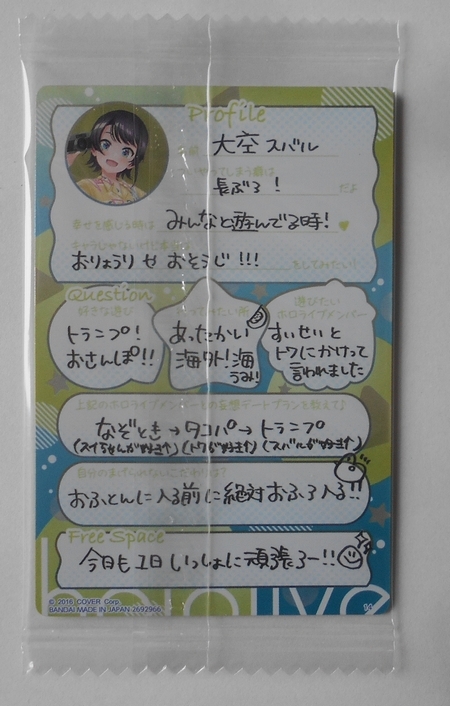 Profile
大空スバル
長ぶろ! だよ
幸せを感じる時は みんなと遊んでる時!
おりょうり や おそうじ!!! をしてみたい!
Question
好きな遊び
トランプ!
おさんぽ!!
あったかい
海外!海
うみ!!
遊びたい
ホロライブメンバー
すいせいと
トワにかけって
言われました
上記のホロライブメンバーとの妄想デートプランを教えて♪
なぞとき→タコパ→トランプ
(スイちゃんが好き) (トワが好き) (スバルが好き)
自分のまげられないこだわりは?
おふとんに入る前に絶対おふろ入る!!
Free Space
今日も1日いっしょに頑張ろー!!
© 2016 COVER Corp.
BANDAI MADE IN JAPAN 2692966
hololive